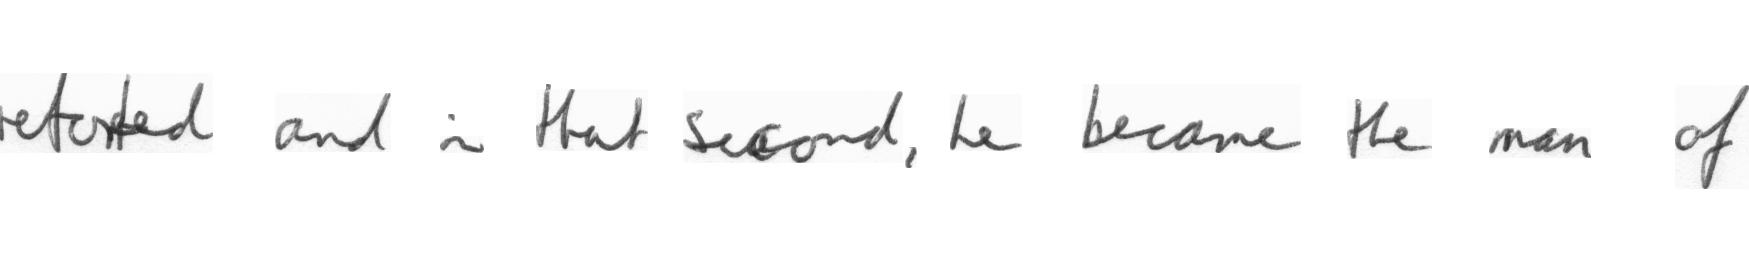 retorted and in that second, he became the man of